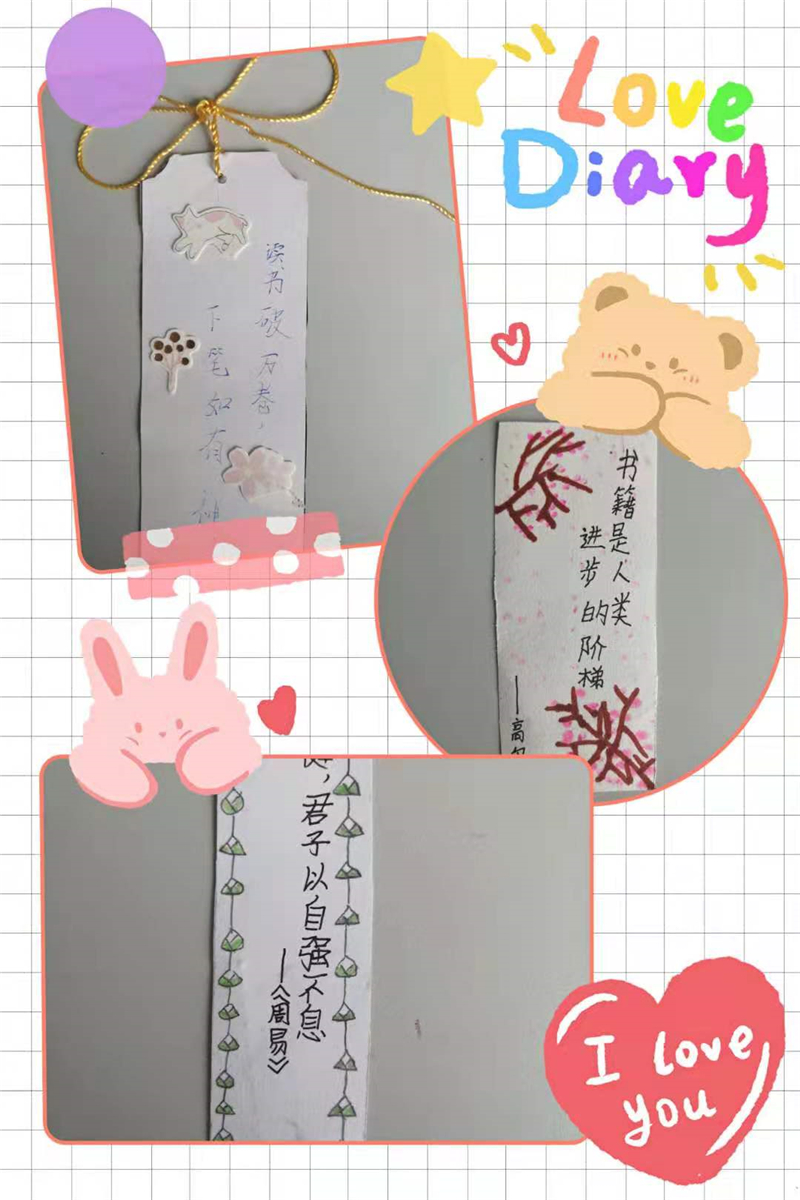 Love
Diary
读书破万卷，
下笔如有神
书籍是人类
进步的阶梯
——高
，君子以自强不息
——《周易》
I love
you